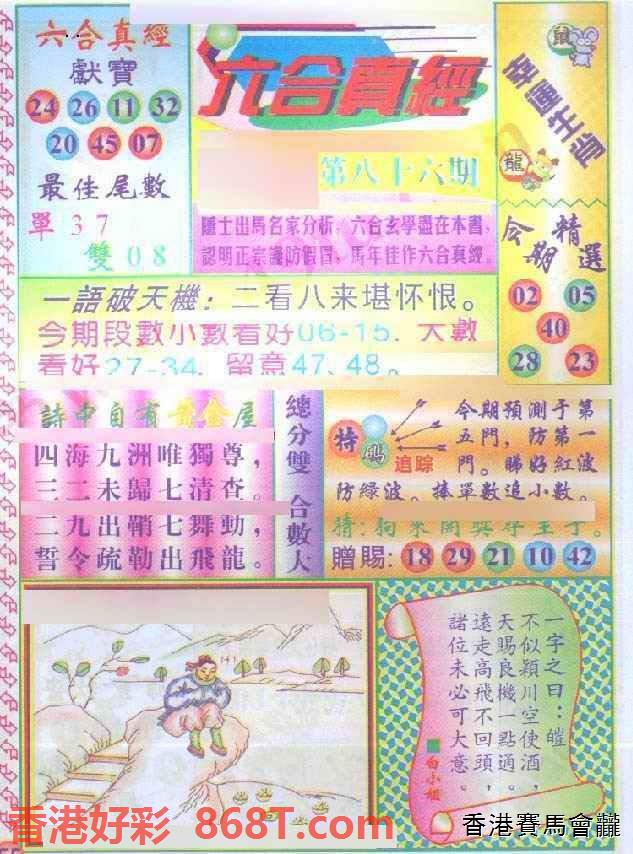 六合真經
獻寶
24 26 11 32
20 45 07
最佳尾數
單 3 7
雙 0 8
六合真經
第八十六期
隱士出馬名家分析，六合玄學盡在本書，
認明正宗謹防假冒，馬年佳作六合真經。
鼠
幸運生肖
龍
今期精選
02 05
40
28 23
一語破天機：二看八来堪怀恨。
今期段數小數看好06-15. 大數
看好27-34. 留意47、48。
詩中自有黃金屋
四海九洲唯獨尊，
三二未歸七清查。
二九出鞘七舞動，
誓令疏勒出飛龍。
總分雙 合數大
特碼
追踪
今期預測于第
五門，防第一
門。睇好紅波
防綠波。捧單數追小數。
贈賜：18 29 21 10 42
一字之曰：皚
不似潁川空使酒，
天賜良機一點通。
遠走高飛不回頭，
諸位未必可大意。
白小姐
香港好彩 868T.com
香港賽馬會